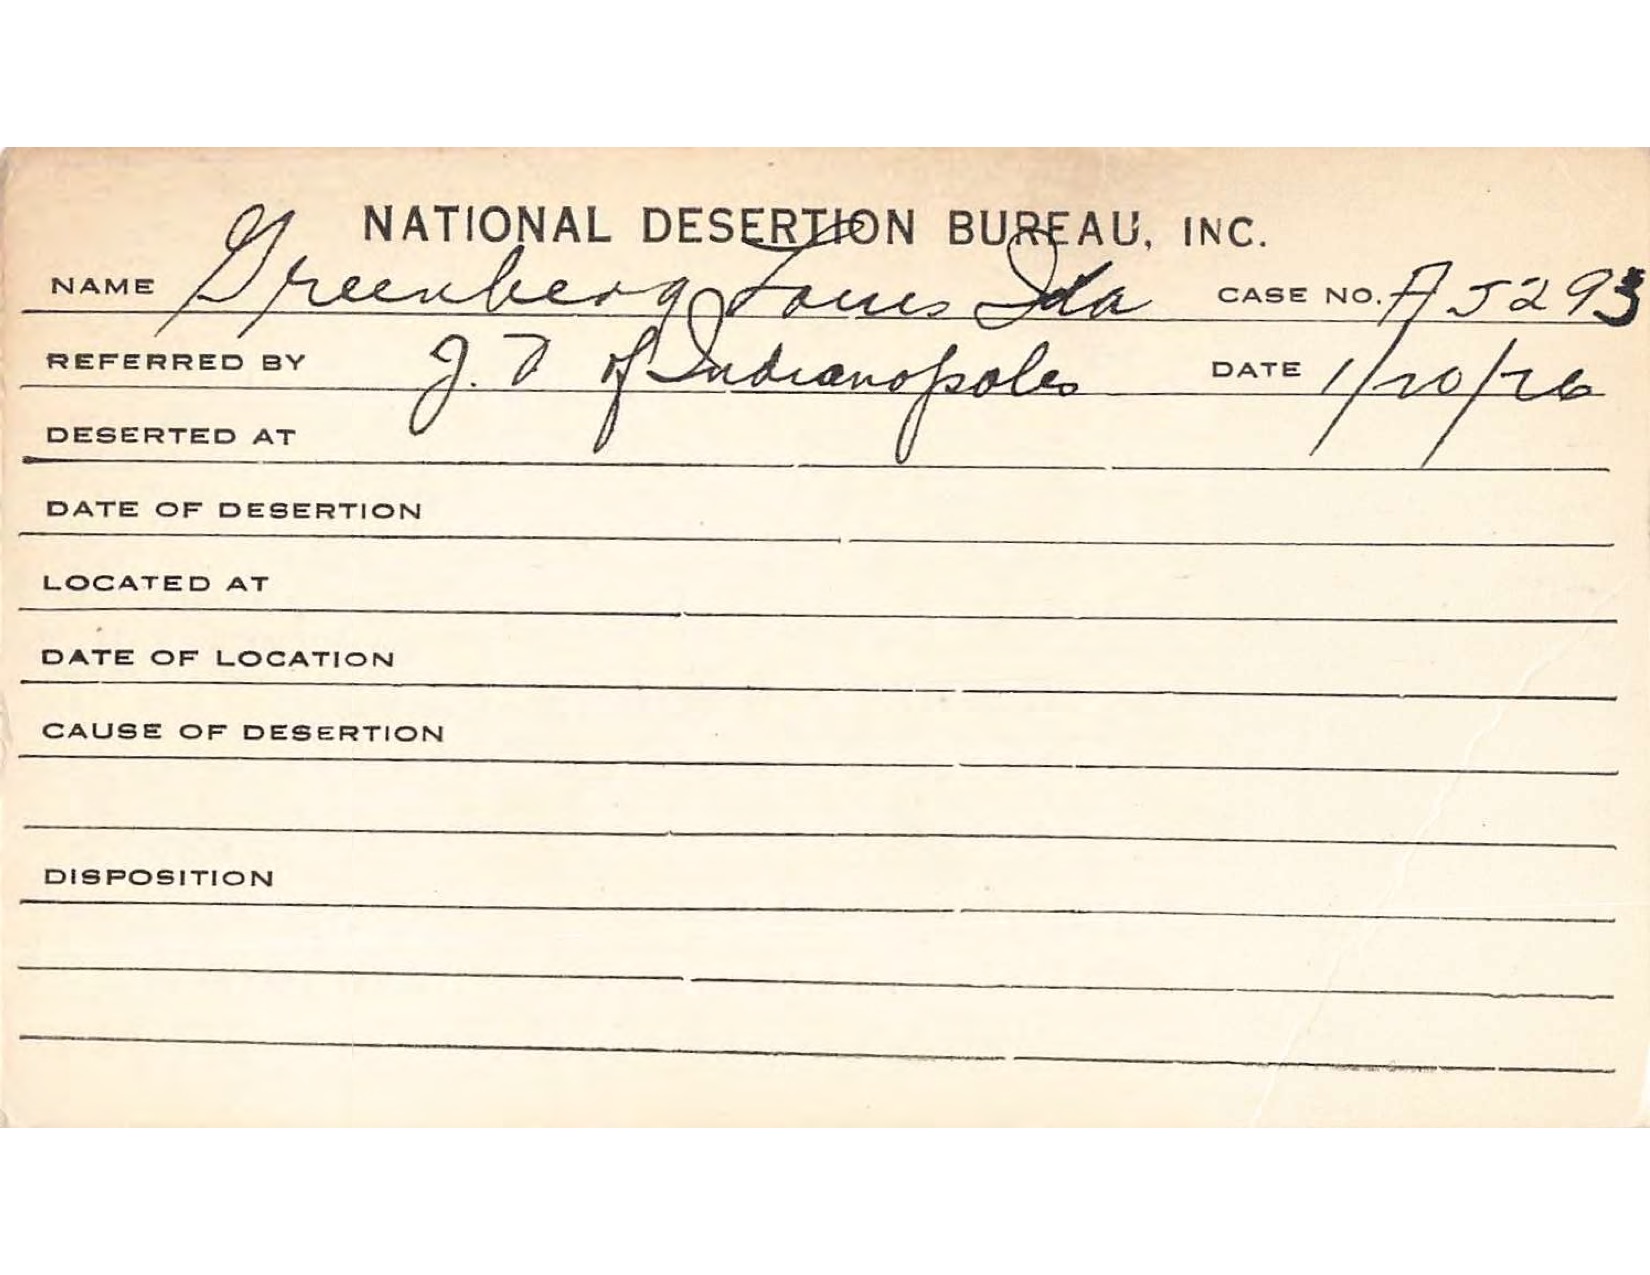 NATIONAL DESERTION BUREAU, INC.
NAME Greenberg Louis Ida CASE NO. A5293
REFERRED BY J. F of Indianapoles DATE 1/20/26
DESERTED AT
DATE OF DESERTION
LOCATED AT
DATE OF LOCATION
CAUSE OF DESERTION
DISPOSITION